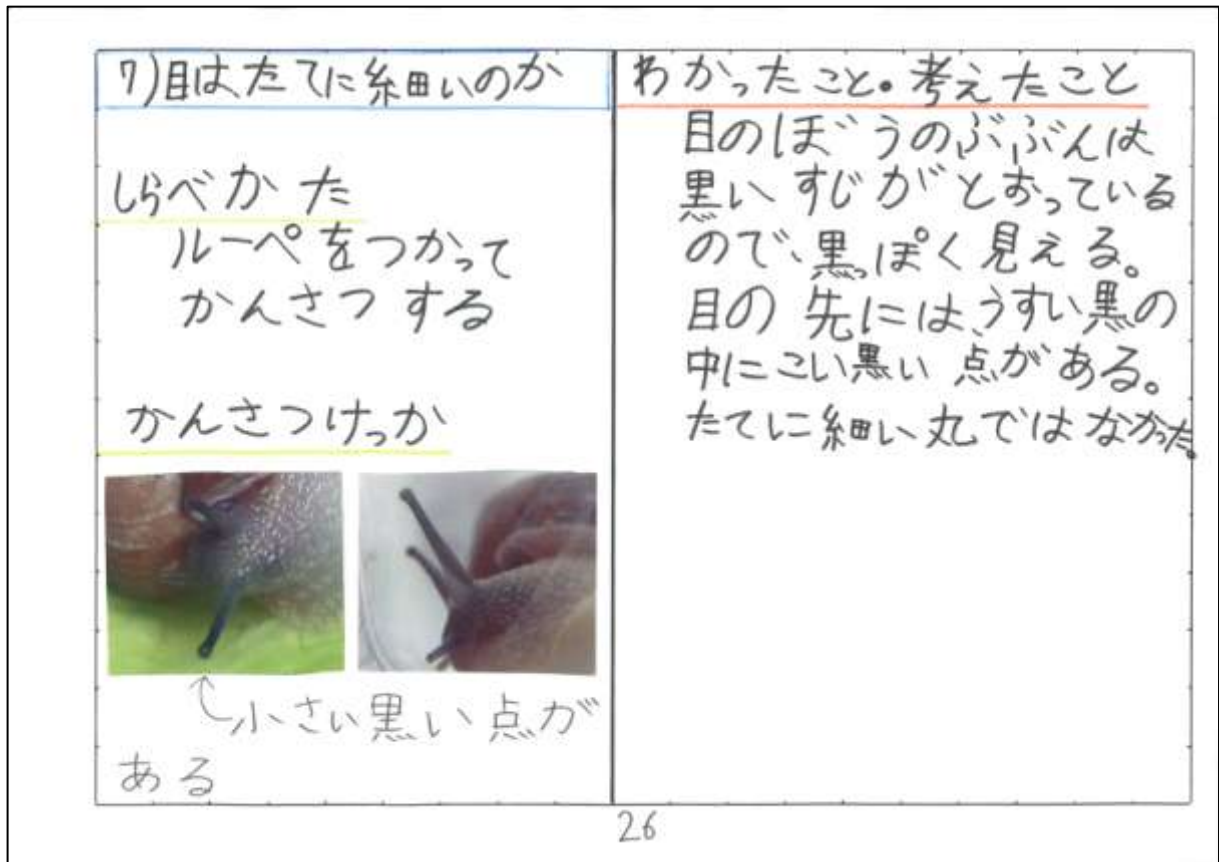 7)目はたてに細いのか
しらべかた
ルーペをつかって
かんさつする
かんさつけっか
小さい黒い点が
ある
わかったこと。考えたこと
目のぼうのぶぶんは
黒いすじがとおっている
ので、黒っぽく見える。
目の先には、うすい黒の
中にこい黒い点がある。
たてに細い丸ではなかった。
26